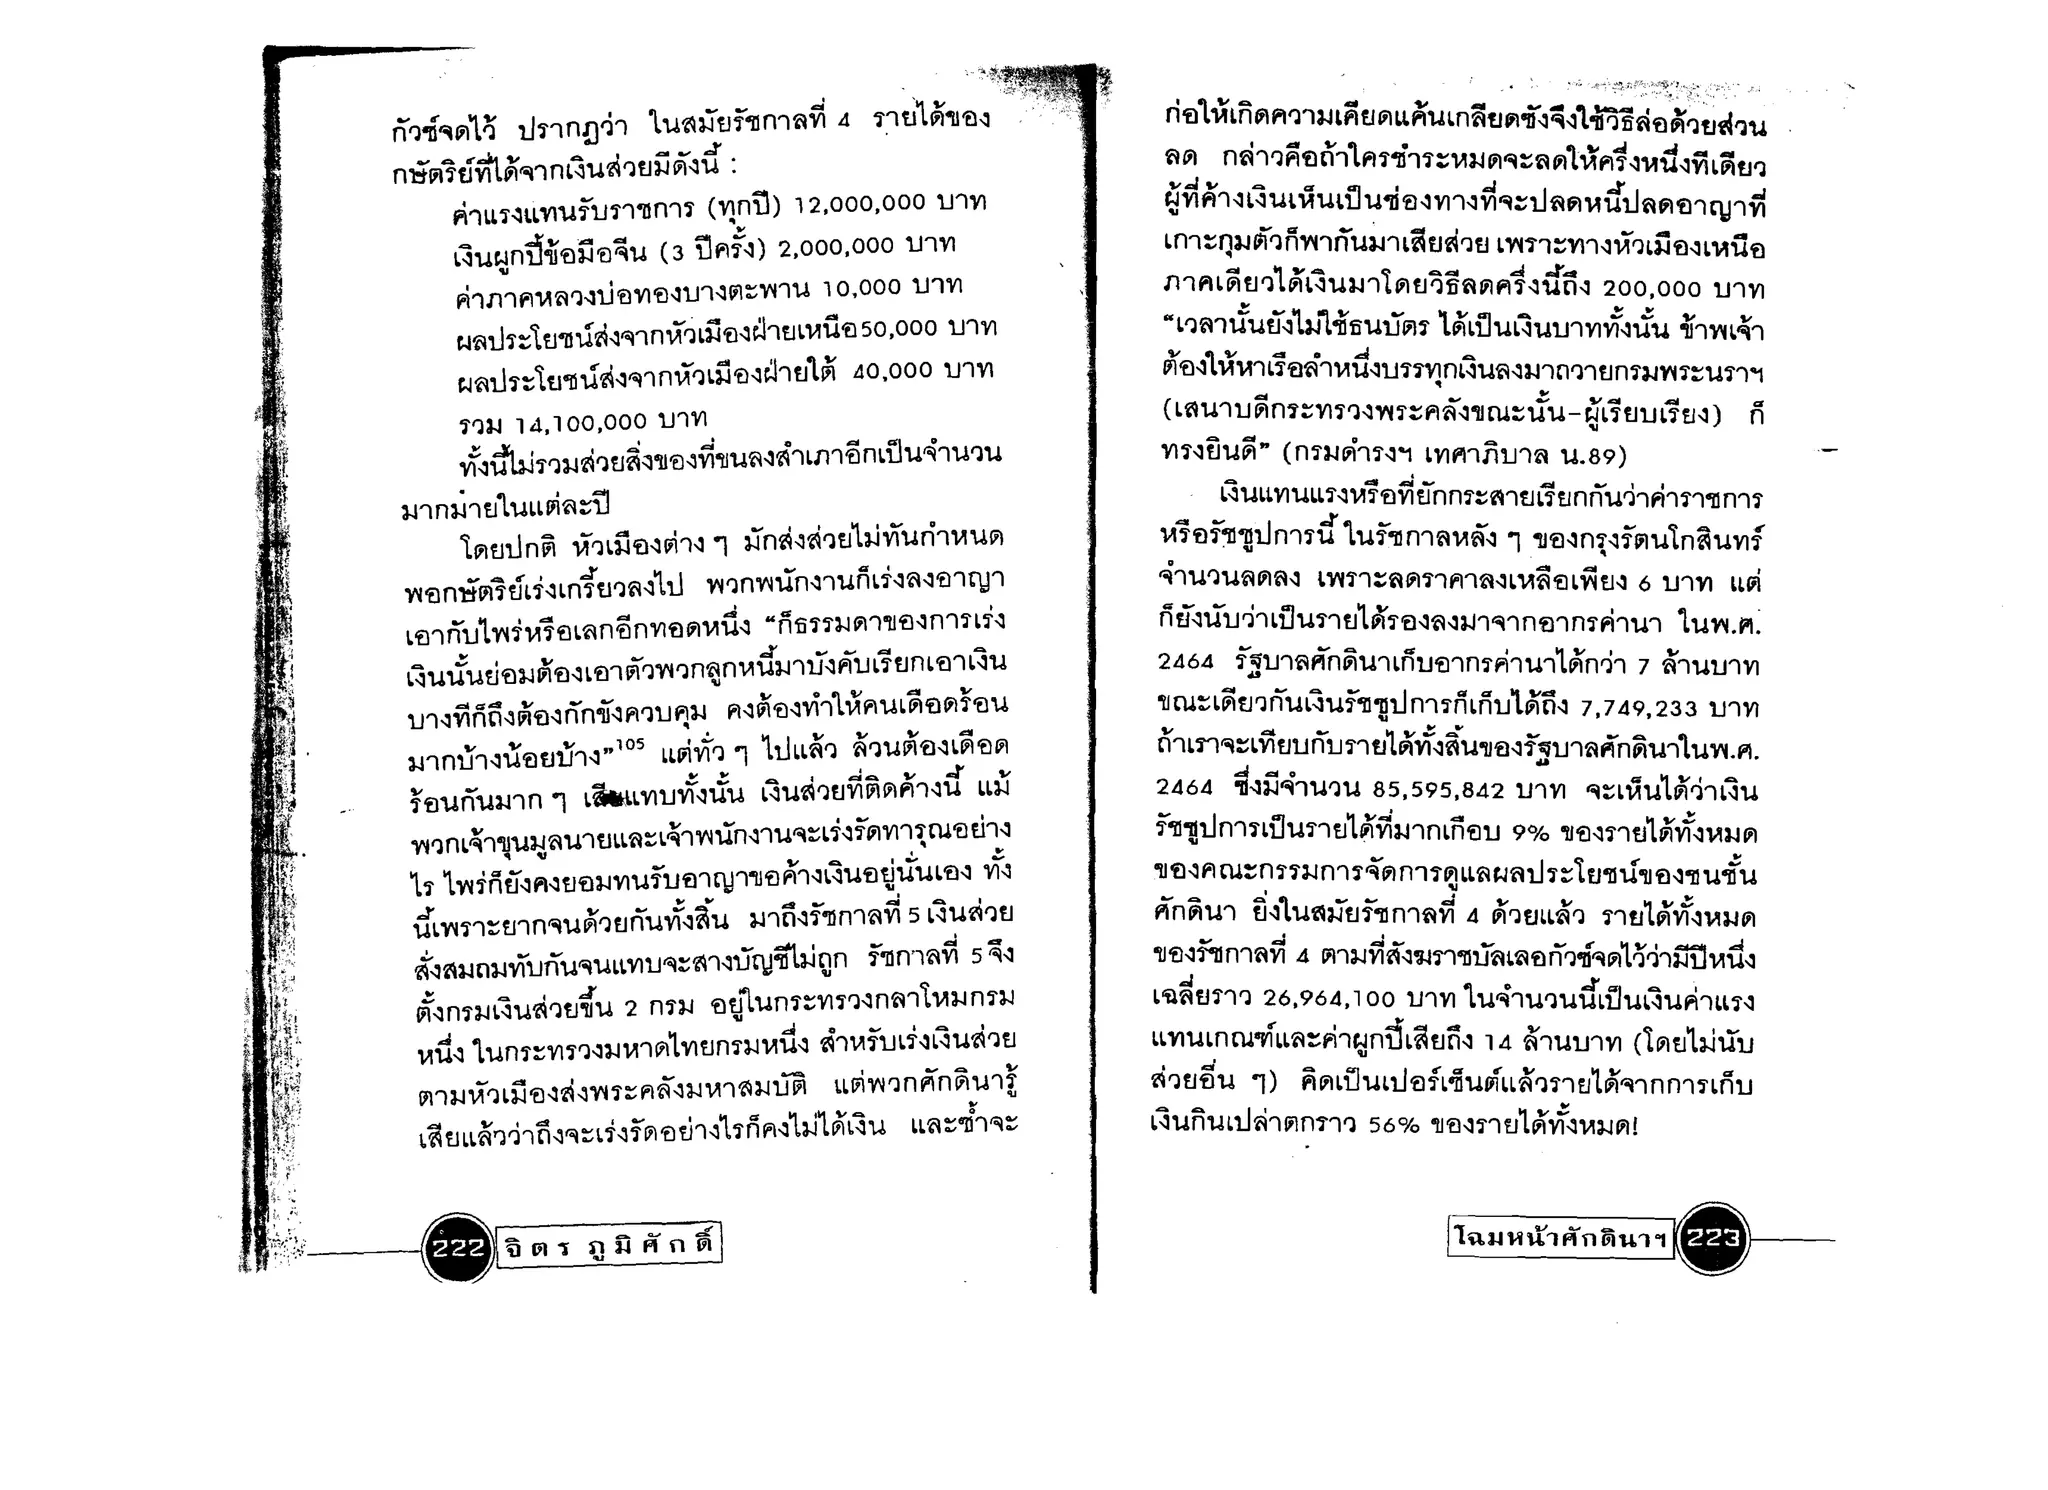 กัวซ์จดไว้ ปรากฏว่า ในสมัยรัชกาลที่ 4 รายได้ของ
กษัตริย์ที่ได้จากเงินส่วยมีดังนี้ :
ค่าแรงแทนรับราชการ (ทุกปี) 12,000,000 บาท
เงินผูกปี้ข้อมือจีน (3 ปีครั้ง) 2,000,000 บาท
ค่าภาคหลวงบ่อทองบางตะพาน 10,000 บาท
ผลประโยชน์ส่งจากหัวเมืองฝ่ายเหนือ50,000 บาท
ผลประโยชน์ส่งจากหัวเมืองฝ่ายใต้ 40,000 บาท
รวม 14,100,000 บาท
ทั้งนี้ไม่รวมส่วยสิ่งของที่ขนลงสำเภาอีกเป็นจำนวน
มากมายในแต่ละปี
โดยปกติ หัวเมืองต่าง ๆ มักส่งส่วยไม่ทันกำหนด
พอกษัตริย์เร่งเกรี้ยวลงไป พวกพนักงานก็เร่งลงอาญา
เอากับไพร่หรือเลกอีกทอดหนึ่ง “ก็ธรรมดาของการเร่ง
เงินนั้นย่อมต้องเอาตัวพวกลูกหนี้มาบังคับเรียกเอาเงิน
บางทีก็ถึงต้องกักขังควบคุม คงต้องทำให้คนเดือดร้อน
มากบ้างน้อยบ้าง”105 แต่ทั่ว ๆ ไปแล้ว ล้วนต้องเดือด
ร้อนกันมาก ๆ เสียแทบทั้งนั้น เงินส่วยที่ติดค้างนี้ แม้
พวกเจ้าขุนมูลนายและเจ้าพนักงานจะเร่งรัดทารุณอย่าง
ไร ไพร่ก็ยังคงยอมทนรับอาญาขอค้างเงินอยู่นั่นเอง ทั้ง
นี้เพราะยากจนด้วยกันทั้งสิ้น มาถึงรัชกาลที่ 5 เงินส่วย
สั่งสมถมทับกันจนแทบจะสางบัญชีไม่ถูก รัชกาลที่ 5 จึง
ตั้งกรมเงินส่วยขึ้น 2 กรม อยู่ในกระทรวงกลาโหมกรม
หนึ่ง ในกระทรวงมหาดไทยกรมหนึ่ง สำหรับเร่งเงินส่วย
ตามหัวเมืองส่งพระคลังมหาสมบัติ แต่พวกศักดินารู้
เสียแล้วว่าถึงจะเร่งรัดอย่างไรก็คงไม่ได้เงิน และซ้ำจะ
222 จิตร ภูมิศักดิ์
ก่อให้เกิดความเคียดแค้นเกลียดชังจึงใช้วิธีล่อด้วยส่วน
ลด กล่าวคือถ้าใครชำระหมดจะลดให้ครึ่งหนึ่งทีเดียว
ผู้ที่ค้างเงินเห็นเป็นช่องทางที่จะปลดหนี้ปลดอาญาที่
เกาะกุมตัวก็พากันมาเสียส่วย เพราะทางหัวเมืองเหนือ
ภาคเดียวได้เงินมาโดยวิธีลดครึ่งนี้ถึง 200,000 บาท
“เวลานั้นยังไม่ใช้ธนบัตร ได้เป็นเงินบาททั้งนั้น ข้าพเจ้า
ต้องให้หาเรือลำหนึ่งบรรทุกเงินลงมาถวายกรมพระนราฯ
(เสนาบดีกระทรวงพระคลังขณะนั้น-ผู้เรียบเรียง) ก็
ทรงยินดี” (กรมดำรงฯ เทศาภิบาล น.89)
เงินแทนแรงหรือที่ยักกระสายเรียกกันว่าค่าราชการ
หรือรัชชูปการนี้ ในรัชกาลหลัง ๆ ของกรุงรัตนโกสินทร์
จำนวนลดลง เพราะลดราคาลงเหลือเพียง 6 บาท แต่
ก็ยังนับว่าเป็นรายได้รองลงมาจากอากรค่านา ในพ.ศ.
2464 รัฐบาลศักดินาเก็บอากรค่านาได้กว่า 7 ล้านบาท
ขณะเดียวกันเงินรัชชูปการก็เก็บได้ถึง 7,749,233 บาท
ถ้าเราจะเทียบกับรายได้ทั้งสิ้นของรัฐบาลศักดินาในพ.ศ.
2464 ซึ่งมีจำนวน 85,595,842 บาท จะเห็นได้ว่าเงิน
รัชชูปการเป็นรายได้ที่มากเกือบ 9% ของรายได้ทั้งหมด
ของคณะกรรมการจัดการดูแลผลประโยชน์ของชนชั้น
ศักดินา ยิ่งในสมัยรัชกาลที่ 4 ด้วยแล้ว รายได้ทั้งหมด
ของรัชกาลที่ 4 ตามที่สังฆราชบัลเลอกัวซ์จดไว้ว่ามีปีหนึ่ง
เฉลี่ยราว 26,964,100 บาท ในจำนวนนี้เป็นเงินค่าแรง
แทนเกณฑ์และค่าผูกปี้เสียถึง 14 ล้านบาท (โดยไม่นับ
ส่วยอื่น ๆ) คิดเป็นเปอร์เซ็นต์แล้วรายได้จากการเก็บ
เงินกินเปล่าตกราว 56% ของรายได้ทั้งหมด!
โฉมหน้าศักดินาฯ 223